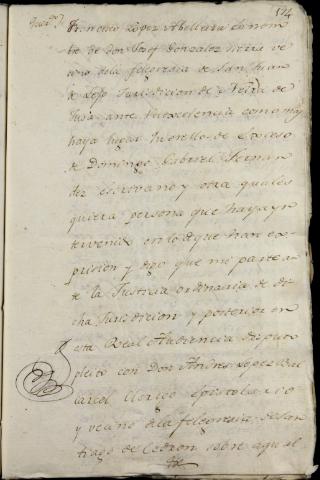 124
Francisco Lopez Abelleira en nom
bre de don Josef Gonzalez veci
no dela feligresia de San Juan
de Jurisdicion de Neira de
Jusa ante Vuexcelencia como mas
haya lugar Querello de Exceso
de Domingo Gabriel Fernan
dez escrivano y otra quales
quiera persona que haya yn
tervenido en lo de que haré ex
presion y digo que mi parte an
te la Justicia ordinaria de di
cha Jurisdicion y posterior en
esta Real Audiencia
pleito con Don Andres Lopez
Clerigo
y vecino dela feligresia de San
tiago de Cedron sobre aquel